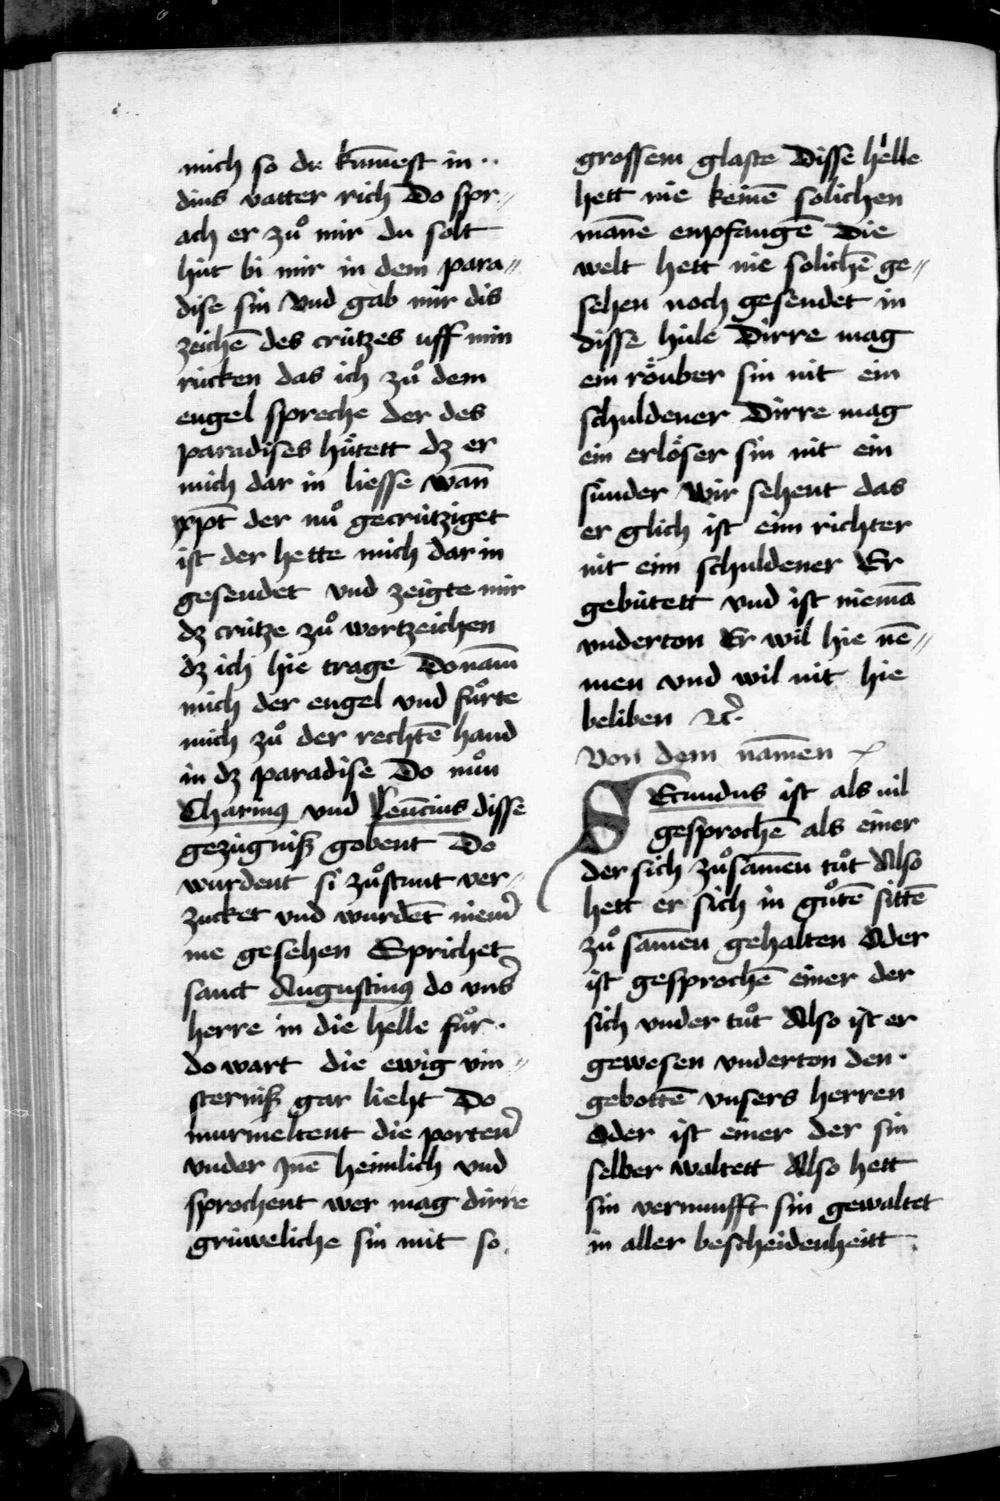 mich so du kum̄est in ··
dins vatter rich Do spr⸗
ach er zuͦ mir du solt
hut bi mir in dem para⸗
dise sin Vnd gab mir dis
zeichē des crützes uff min
rücken das ich zuͦ dem
engel spreche der des
paradises huͤtett dz er
mich dar in liesse wān
xp̄t der nuͦ gecrütziget
ist der hette mich dar in
gesendet vnd zeigte mir
dz crütze zuͦ wortzeichen
dz ich hie trage Do nam̄
mich der engel vnd fuͦrte
mich zuͦ der rechtē hand
in dz paradise Do nuͦn
Charinꝯ vnd Leūcius disse
gezügniß gobent Do
wurdent si zuͦstunt ver⸗
zucket vnd wurdēt niem̉
me gesehen Sprichet
sanct Augustinꝯ do vns̉
herre in die helle fuͦr ·
do wart die ewig vin⸗
sterniß gar lieht Do
murmeltent die porten̉
vnder Jnē heimlich vnd
sprochent wer mag dirre
grüweliche sin mit so
grossem glaste Disse helle
hett nie keinē solichen
man̄e enpfangē Die
welt hett nie solichē ge⸗
sehen noch gesendet in
disse hüle Dirre mag
ein röuber sin nit ein
schuldener Dirre mag
ein erlöser sin nit ein
sünder Wir sehent das
er glich ist eim richter
nit eim schuldener Er
gebütett vnd ist niemā
vnderton Er wil hie nē⸗
men vnd wil nit hie
beliben ꝛc̉.
Von dem nam̄en
SEcundus ist als uil
gesprochē als einer
der sich zuͦsam̄en tuͦt Also
hett er sich in guͦtē sittē
zuͦ sam̄en gehalten Oder
ist gesprochē einer der
sich vnder tuͦt Also ist er
gewesen vnderton den ·
gebottē vnsers herren
Oder ist einer der sin
selber waltett Also hett
sin vernunfft sin gewaltet
in aller bescheidenheitt